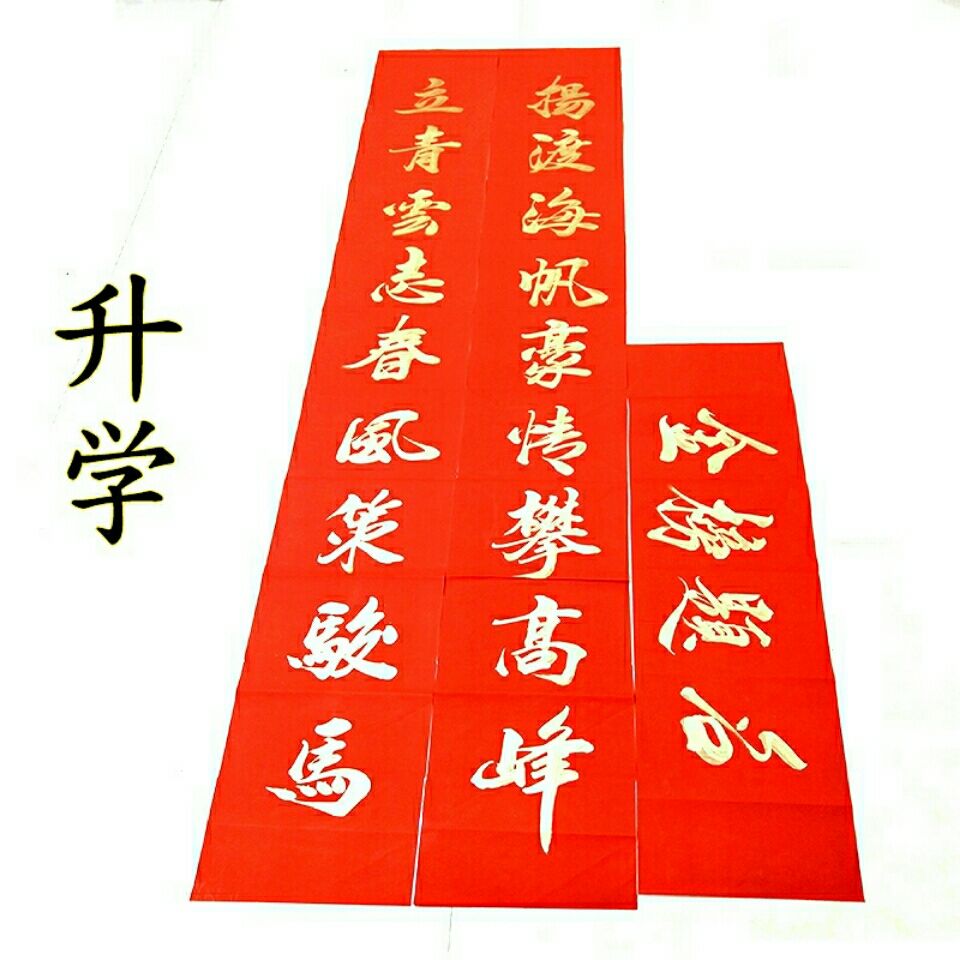 升学
立青雲志春風策駿馬
揚渡海帆豪情攀高峰
金榜題名